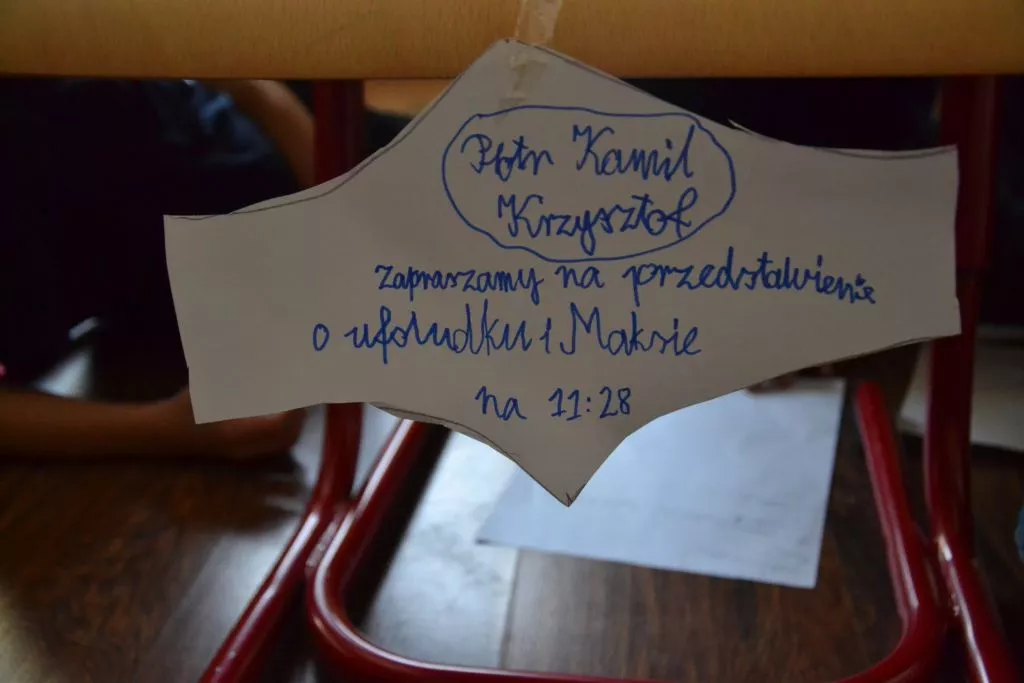 Piotr Kamil
Krzysztof
zapraszamy na przedstawienie
o ufoludku i Maksie
na 11:28